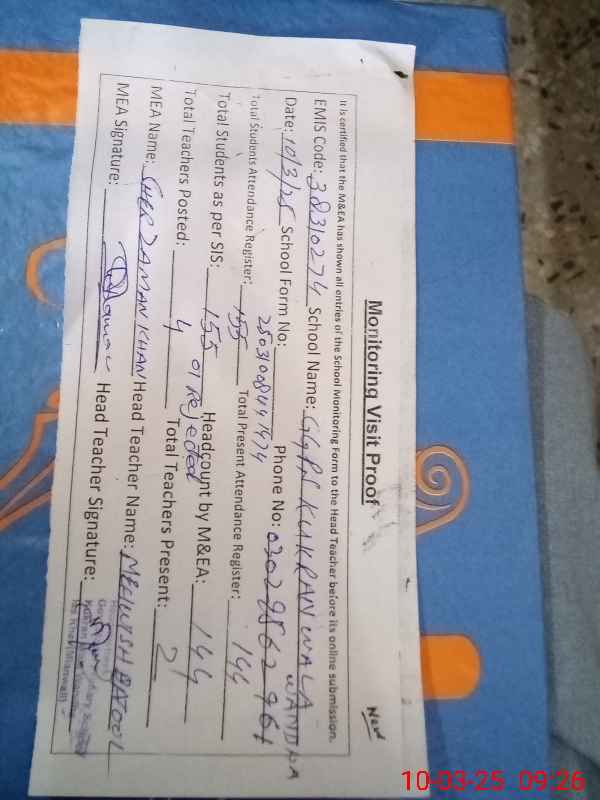 Monitoring Visit Proof
NEW
It is certified that the M&EA has shown all entries of the School Monitoring Form to the Head Teacher before its online submission.
EMIS Code: 38310274 School Name: GGPS KUKRANWALA WANDHA
Date: 10/3/25 School Form No: 25031008441474 Phone No: 03028862961
Total Students Attendance Register: 155 Total Present Attendance Register: 144
Total Students as per SIS: 155 Headcount by M&EA: 144
01 Rejected
Total Teachers Posted: 4 Total Teachers Present: 2
MEA Name: SHER ZAMAN KHAN Head Teacher Name: MEHWISH BATOOL
MEA Signature: Head Teacher Signature:
10-03-25 09:26